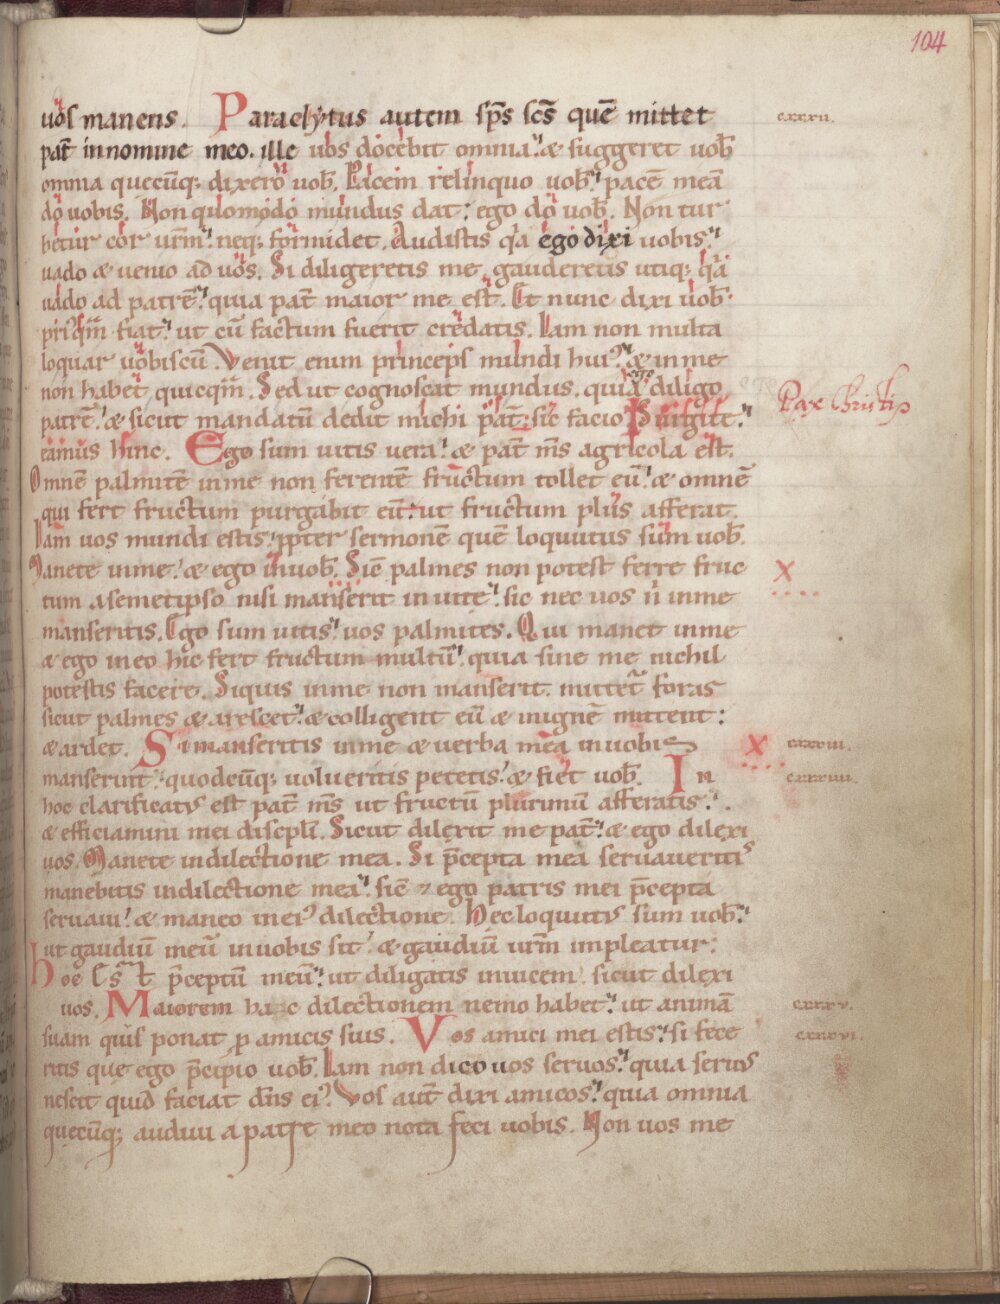 104
uos manens. Paraclytus autem sp̄s sc̄s quē mittet cxxxii.
pat̄ in nomine meo. ille uos docebit omnia. & suggeret uob̄
omnia quecūq; dixero uob̄. Pacem relinquo uob̄. pacē meā
do uobis. Non quomodo mundus dat: ego do uob̄. Non tur
betur cor ur̄m. neq; formidet. Audistis q̓a ego dixi uobis.
uado & uenio ad uos. Si diligeretis me gauderetis utiq; q̓a
uado ad patrē. quia pat̄ maior me est. Et nunc dixi uob̄.
priusqm̄ fiat. ut cū factum fuerit credatis. Iam non multa
loquar uobiscū. Venit enim princeps mundi hui᾽. & in me
non habet quicqm̄. Sed ut cognoscat mundus. quia ego diligo
patrē. & sicut mandatū dedit michi pat̄. sic facio. Surgite. Pax Christi
eamus hinc. Ego sum uitis uera. & pat̄ m̄s agricola est.
Omnē palmitē in me non ferentē fructum tollet eū. & omnē
qui fert fructum purgabit eū. ut fructum plus afferat.
Iam uos mundi estis. ppter sermonē quē loquutus sum uob̄.
Manete in me. & ego in uob̄. Sic̄ palmes non potest ferre fruc x
tum a semetipso nisi manserit in uite. sic nec uos n̄ in me
manseritis. Ego sum uitis. uos palmites. Qui manet in me
& ego in eo hic fert fructum multū. quia sine me nichil
potestis facere. Siquis in me non manserit. mittet᾽ foras
sicut palmes & arescet. & colligent eū & in ignē mittent:
& ardet. Si manseritis in me & uerba mea in uobis x cxxxiii.
manserint. quodcūq; uolueritis petetis. & fiet uob̄. In cxxxiiii.
hoc clarificat᾽ est pat̄ m̄s ut fructū plurimū afferatis.
& efficiamini mei discipl̄i. Sicut dilexit me pat̄. & ego dilexi
uos. Manete in dilectione mea. Si p̄cepta mea seruaueritis
manebitis in dilectione mea. sic̄ 7 ego patris mei p̄cepta
seruaui. & maneo in ei᾽ dilectione. Hec loquut᾽ sum uob̄.
ut gaudiū meū in uobis sit. & gaudiū ur̄m impleatur:
hoc est p̄ceptū meū. ut diligatis inuicem sicut dilexi
uos. Maiorem hanc dilectionem nemo habet. ut animā cxxxv.
suam quis ponat p amicis suis. Vos amici mei estis. si fece cxxxvi.
ritis que ego p̄cipio uob̄. Iam non dico uos seruos. quia seruus
nescit quid faciat dn̄s ei᾽. Vos aut̄ dixi amicos. quia omnia
quecūq; audiui a patre meo nota feci uobis. Non uos me